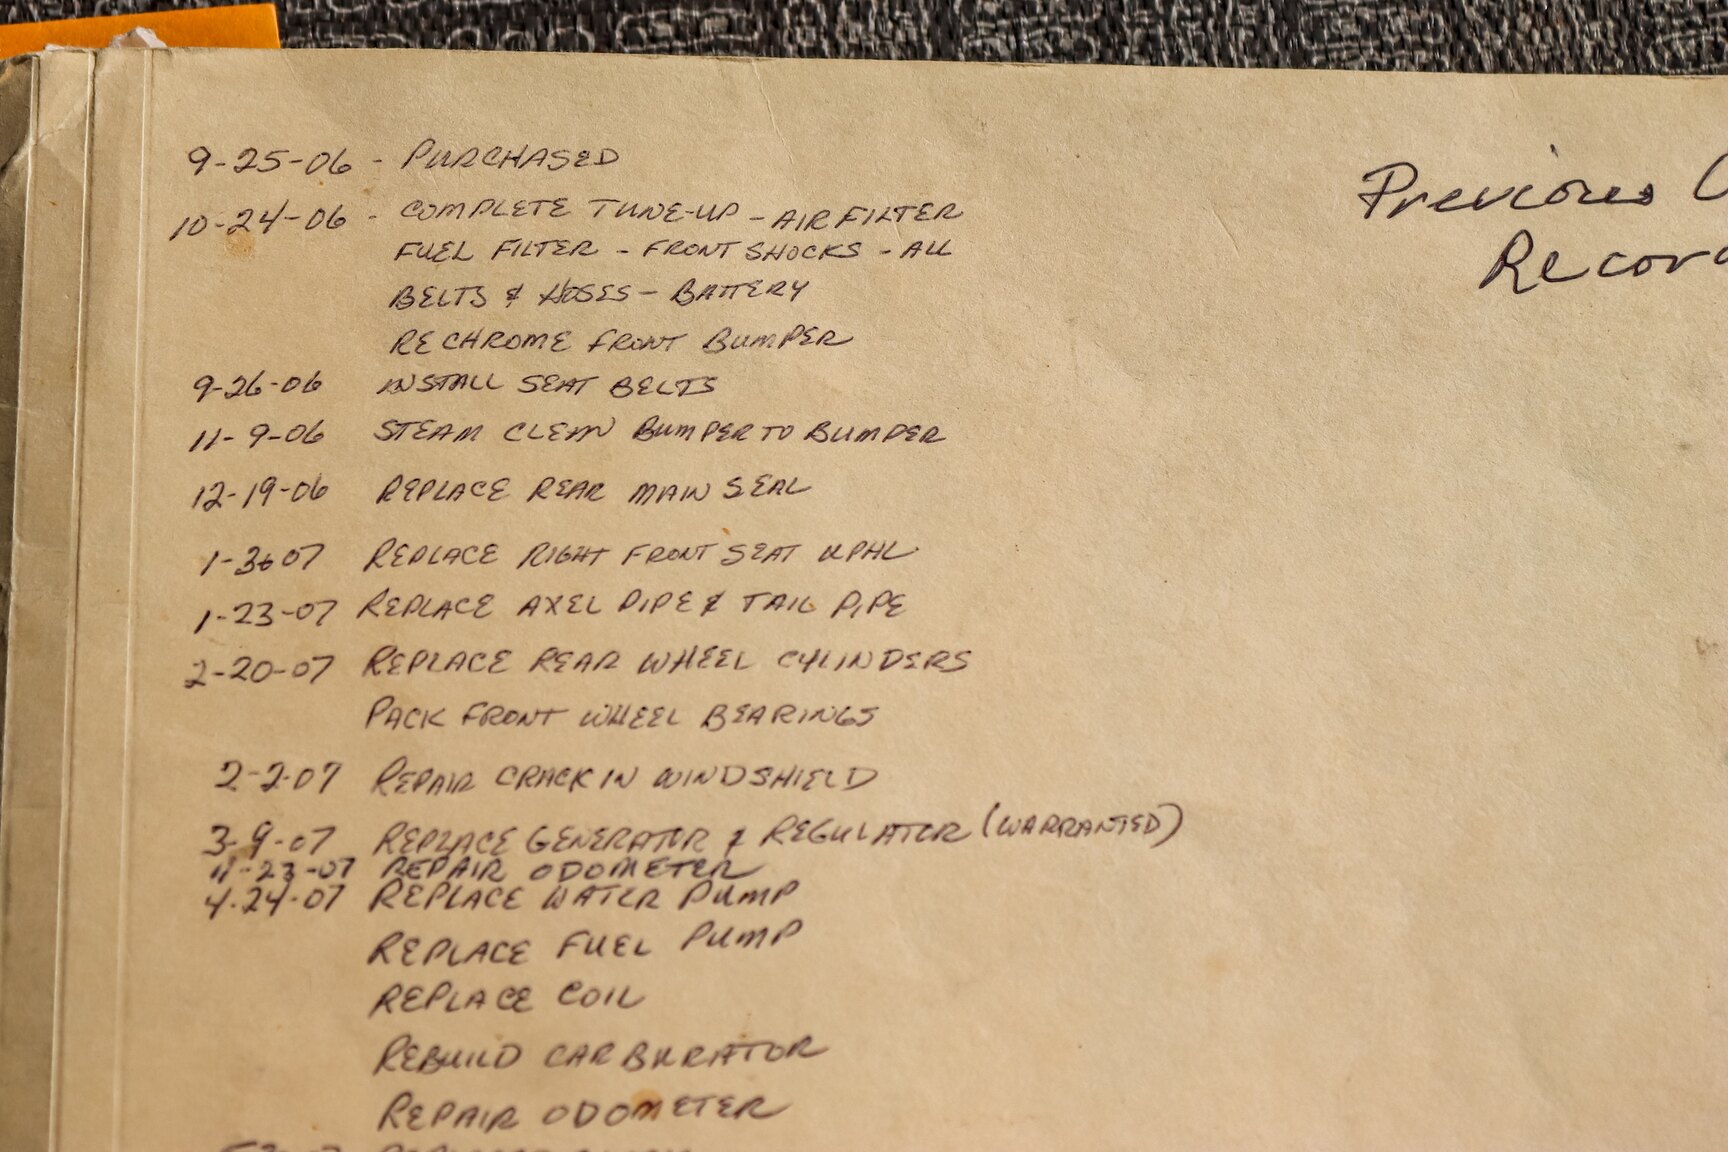 9-25-06 - PURCHASED
10-24-06 - COMPLETE TUNE-UP - AIR FILTER
FUEL FILTER - FRONT SHOCKS - ALL
BELTS & HOSES - BATTERY
RECHROME FRONT BUMPER
9-26-06 INSTALL SEAT BELTS
11-9-06 STEAM CLEAN BUMPER TO BUMPER
12-19-06 REPLACE REAR MAIN SEAL
REPLACE RIGHT FRONT SEAT UPHL
1-23-07 REPLACE AXEL PIPE & TAIL PIPE
2-20-07 REPLACE REAR WHEEL CYLINDERS
PACK FRONT WHEEL BEARINGS
2-2-07 REPAIR CRACK IN WINDSHIELD
3-9-07 REPLACE GENERATOR & REGULATOR (WARRANTED)
11-23-07 REPAIR ODOMETER
4-24-07 REPLACE WATER PUMP
REPLACE FUEL PUMP
REPLACE COIL
REBUILD CARBURATOR
REPAIR ODOMETER
Previous
Recor